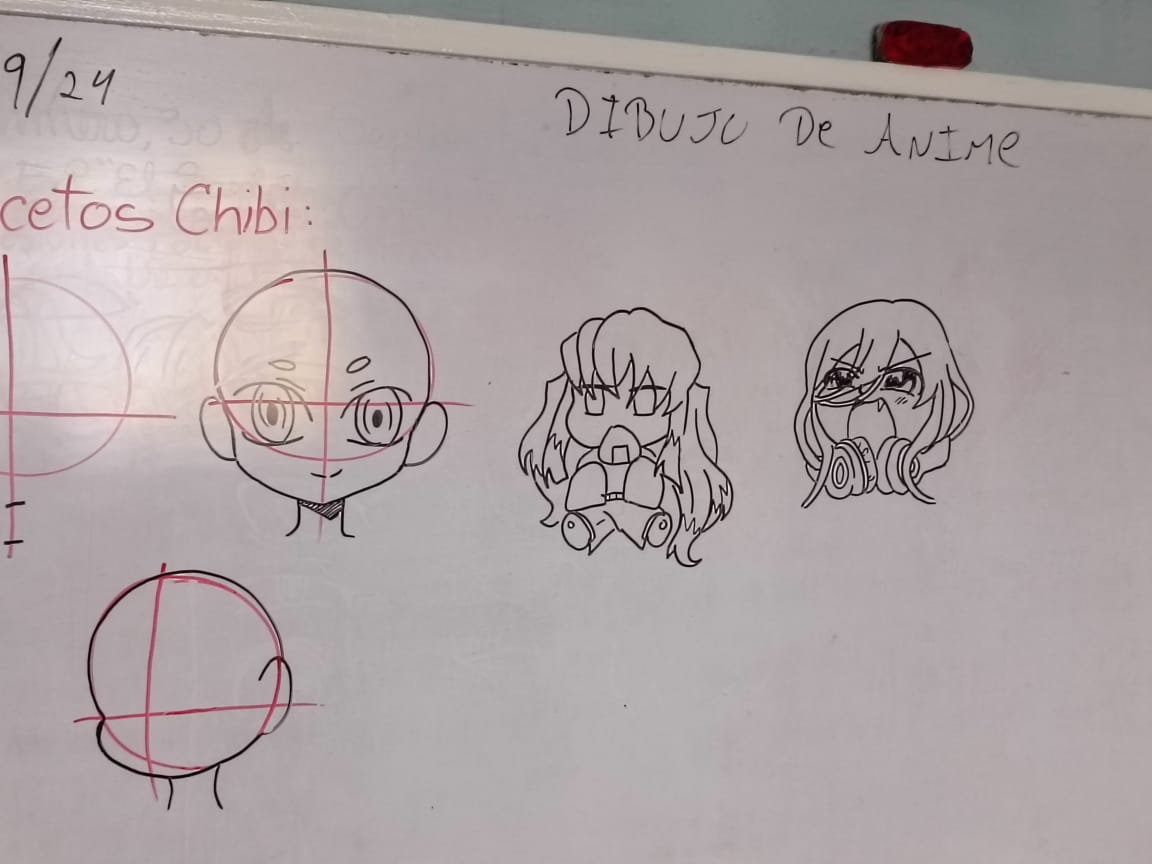 9/24
DIBUJO De ANIMe
cetos Chibi: